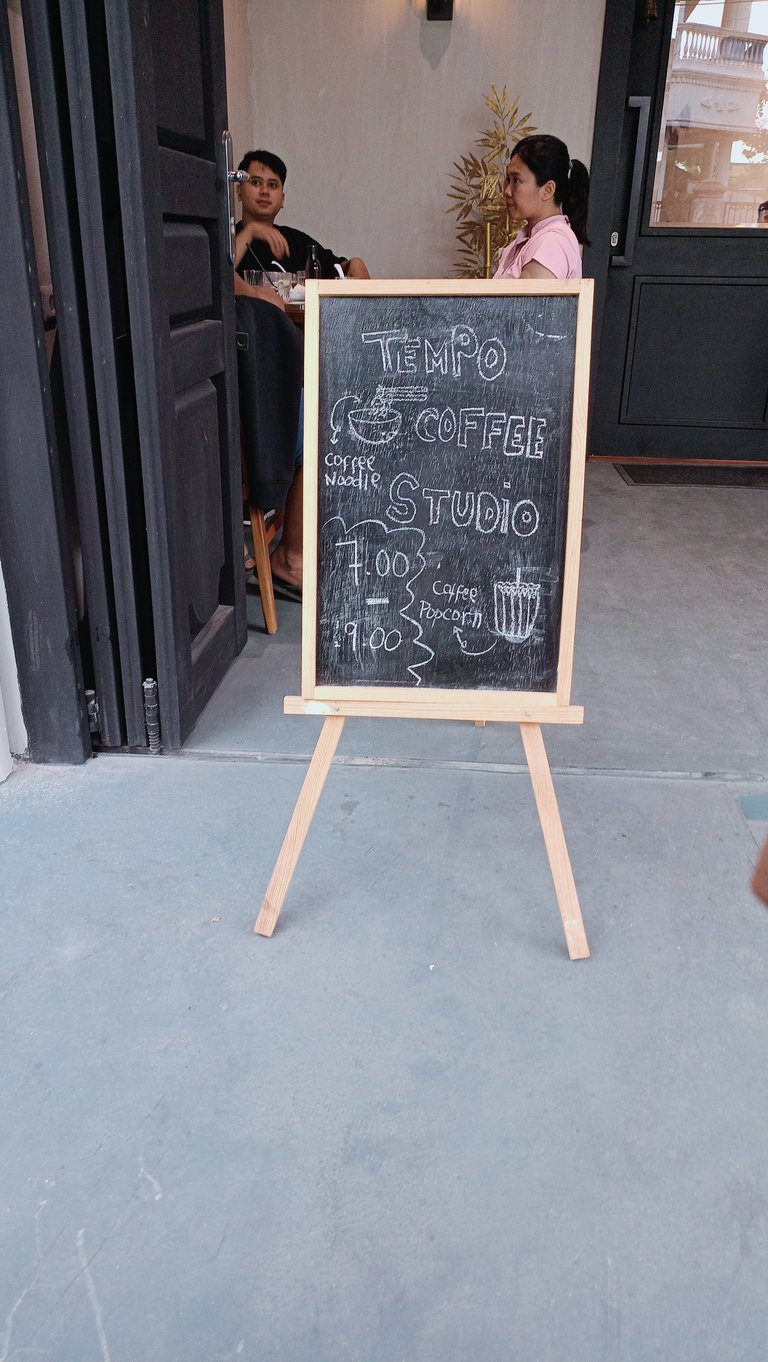 TEMPO
COFFEE
Coffee
Noodle
STUDiO
7.00
-
19.00
Coffee
Popcorn